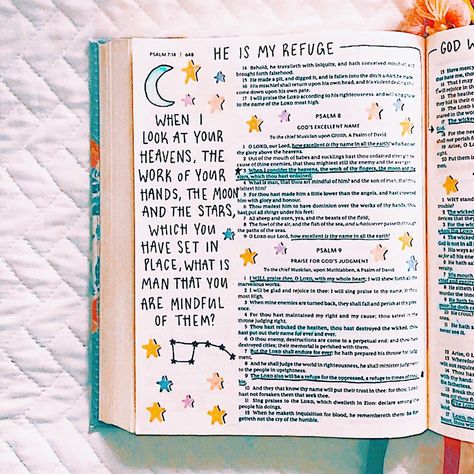 PSALM 7:14 | 648
HE IS MY REFUGE
WHEN I
LOOK AT YOUR
HEAVENS, THE
WORK OF YOUR
HANDS, THE MOON
AND THE STARS,
WHICH YOU
HAVE SET IN
PLACE, WHAT IS
MAN THAT YOU
ARE MINDFUL
OF THEM?
14 Behold, he travaileth with iniquity, and hath conceived mischief, and
brought forth falsehood.
15 He made a pit, and digged it, and is fallen into the ditch which he made.
16 His mischief shall return upon his own head, and his violent dealing shall
come down upon his own pate.
17 I will praise the LORD according to his righteousness: and will sing praise
to the name of the LORD most high.
PSALM 8
GOD'S EXCELLENT NAME
To the chief Musician upon Gittith, A Psalm of David
1 O LORD, our Lord, how excellent is thy name in all the earth! who hast set
thy glory above the heavens.
2 Out of the mouth of babes and sucklings hast thou ordained strength be-
cause of thine enemies, that thou mightest still the enemy and the avenger.
3 When I consider thy heavens, the work of thy fingers, the moon and the
stars, which thou hast ordained;
4 What is man, that thou art mindful of him? and the son of man, that thou
visitest him?
5 For thou hast made him a little lower than the angels, and hast crowned
him with glory and honour.
6 Thou madest him to have dominion over the works of thy hands; thou
hast put all things under his feet:
7 All sheep and oxen, yea, and the beasts of the field;
8 The fowl of the air, and the fish of the sea, and whatsoever passeth through
the paths of the seas.
9 O LORD our Lord, how excellent is thy name in all the earth!
PSALM 9
PRAISE FOR GOD'S JUDGMENT
To the chief Musician upon Muthlabben, A Psalm of David
1 I WILL praise thee, O LORD, with my whole heart; I will shew forth all thy
marvellous works.
2 I will be glad and rejoice in thee: I will sing praise to thy name, O thou
most High.
3 When mine enemies are turned back, they shall fall and perish at thy pres-
ence.
4 For thou hast maintained my right and my cause; thou satest in the
throne judging right.
5 Thou hast rebuked the heathen, thou hast destroyed the wicked, thou
hast put out their name for ever and ever.
6 O thou enemy, destructions are come to a perpetual end: and thou hast
destroyed cities; their memorial is perished with them.
7 But the LORD shall endure for ever: he hath prepared his throne for judg-
ment.
8 And he shall judge the world in righteousness, he shall minister judgment
to the people in uprightness.
9 The LORD also will be a refuge for the oppressed, a refuge in times of trou-
ble.
10 And they that know thy name will put their trust in thee: for thou, LORD,
hast not forsaken them that seek thee.
11 Sing praises to the LORD, which dwelleth in Zion: declare among the
people his doings.
12 When he maketh inquisition for blood, he remembereth them: he for-
getteth not the cry of the humble.
GOD W